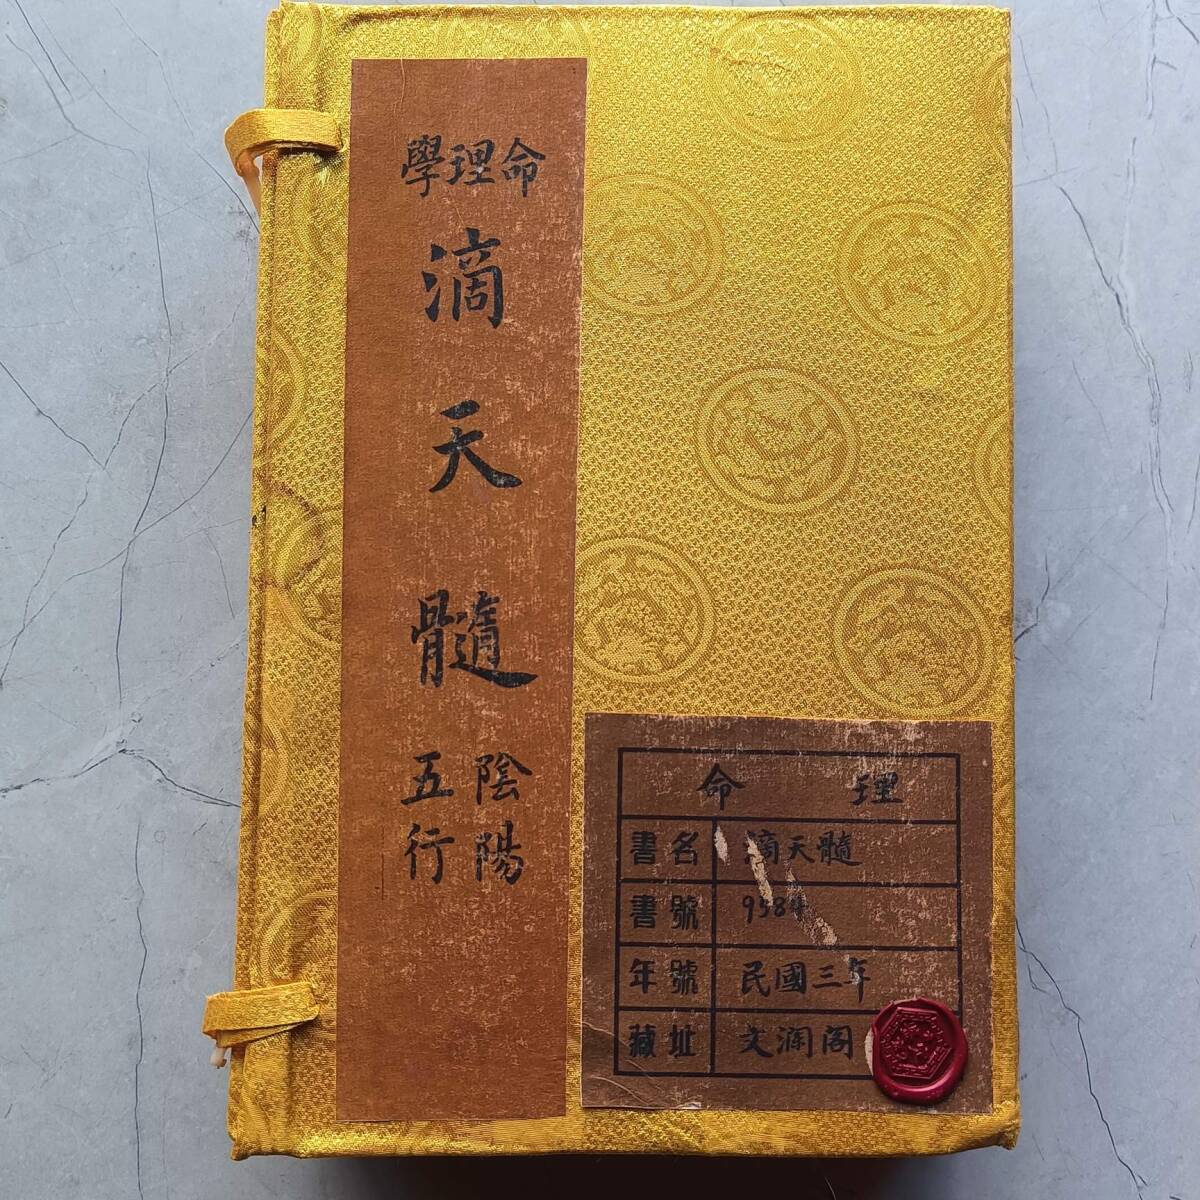 命理學
滴天髓
陰陽
五行
命 理
書名 滴天髓
書號 9584
年號 民國三年
藏址 文澜阁